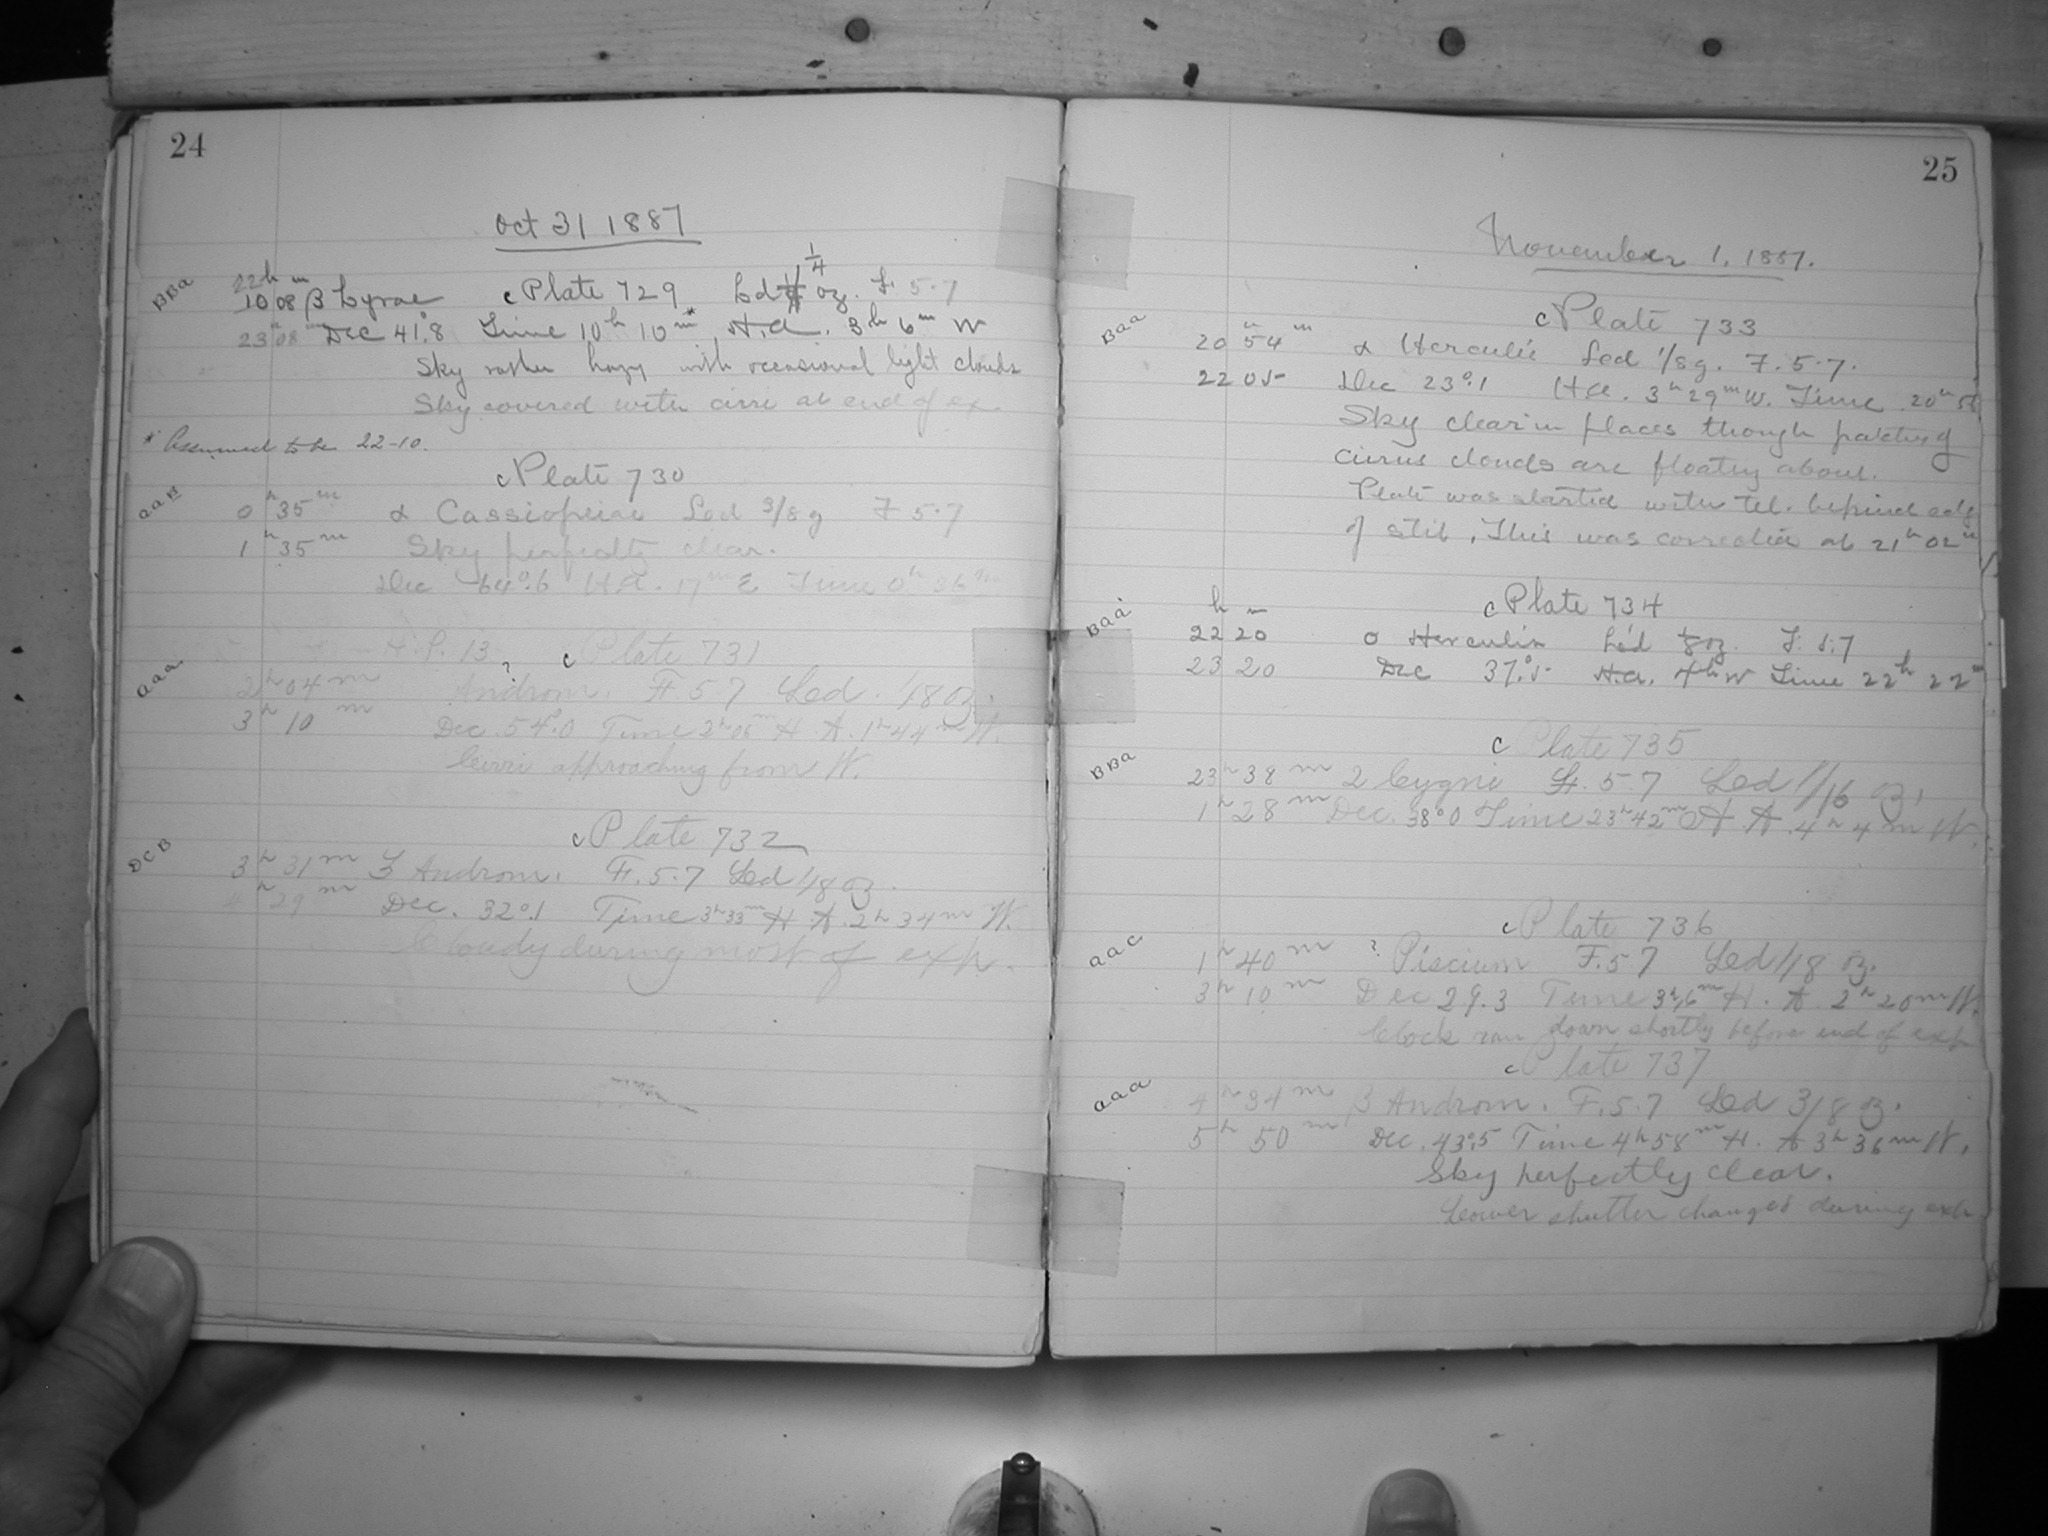 24
Oct 31 1887
BBa 22h m
10 08 β Lyrae c Plate 729 Led 1/4 oz. F. 5.7
23 08 Dec 41°.8 Time 10h 10m* H.A. 3h 6m W
Sky rather hazy with occasional light clouds
Sky covered with cirri at end of ex.
* Assumed to be 22-10.
c Plate 730
aaB 0h 35m α Cassiopeiae Led 3/8 g F 5.7
1h 35m Sky perfectly clear.
Dec 64°.6 H.A. 17m E Time 0h 36m
H.P. 13 c Plate 731
aaa 2h 04m ? Androm. F. 5.7 Led. 1/8 oz.
3h 10m Dec. 54°.0 Time 2h 06m H. A. 1h 44m W.
Cirri approaching from W.
c Plate 732
DCB 3h 31m Androm. F. 5.7 Led 1/8 oz.
4h 29m Dec. 32°.1 Time 3h 33m H. A. 2h 34m W.
Cloudy during most of exp.
25
November 1, 1887.
c Plate 733
Baa 20h 54m α Herculis Led 1/8 g. F. 5.7.
22 05 Dec 23°.1 H.A. 3h 29m W. Time 20h
Sky clear in places though patches of
cirrus clouds are floating about.
Plate was started with tel. behind edge
of slit. This was corrected at 21h 02m
c Plate 734
Baa h m
22 20 o Herculis Led 1/8 oz. F. 5.7
23 20 Dec 37°.5 H.A. 4h W Time 22h 22m
c Plate 735
BBa 23h 38m 2 Cygni F. 5.7 Led 1/16 oz.
1h 28m Dec. 38°0 Time 23h 42m H. A. 4h 4m W.
c Plate 736
aac 1h 40m ? Piscium F. 5.7 Led 1/8 oz.
3h 10m Dec 29.3 Time 3h 6m H. A. 2h 20m W.
Clock ran down shortly before end of exp
c Plate 737
aaa 4h 34m β Androm. F. 5.7 Led 3/8 oz.
5h 50m Dec. 43°.5 Time 4h 58m H. A 3h 36m W.
Sky perfectly clear.
Lower shutter changed during exp